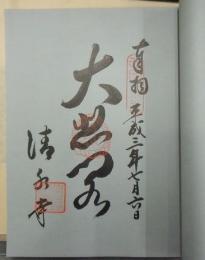 奉拝 平成三年七月六日
大悲閣
清水寺